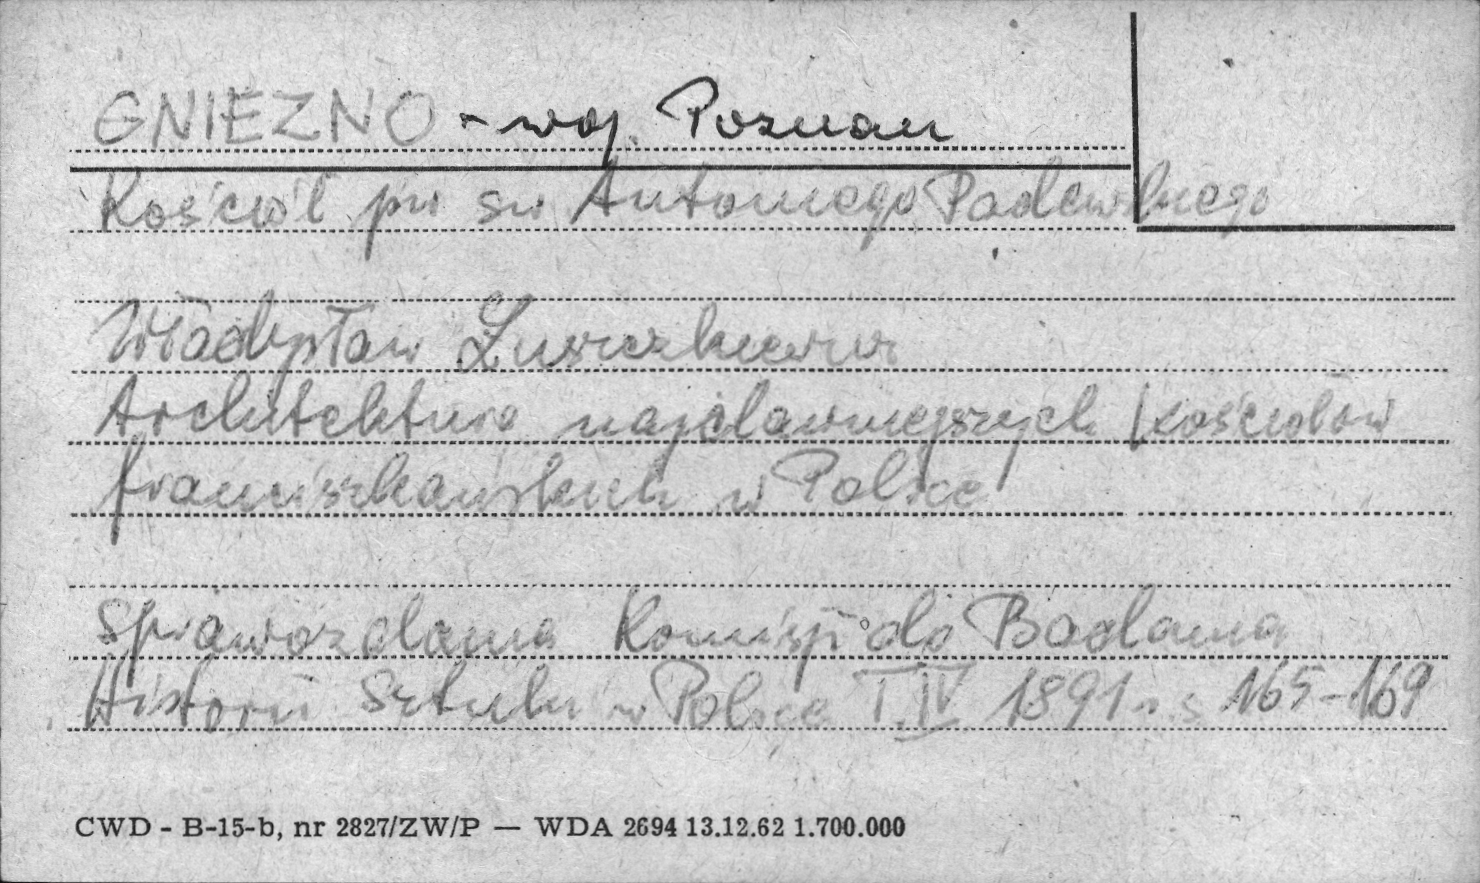 GNIEZNO - woj. Poznan
Kościół pw św Antoniego Padewskiego
Władysław Łuszczkiewicz
Architektura najdawniejszych kościołów
franciszkańskich w Polsce
Sprawozdania Komisji do Badania
Historii Sztuki w Polsce T.IV 1891 r. s 165-169
CWD - B-15-b, nr 2827/ZW/P — WDA 2694 13.12.62 1.700.000